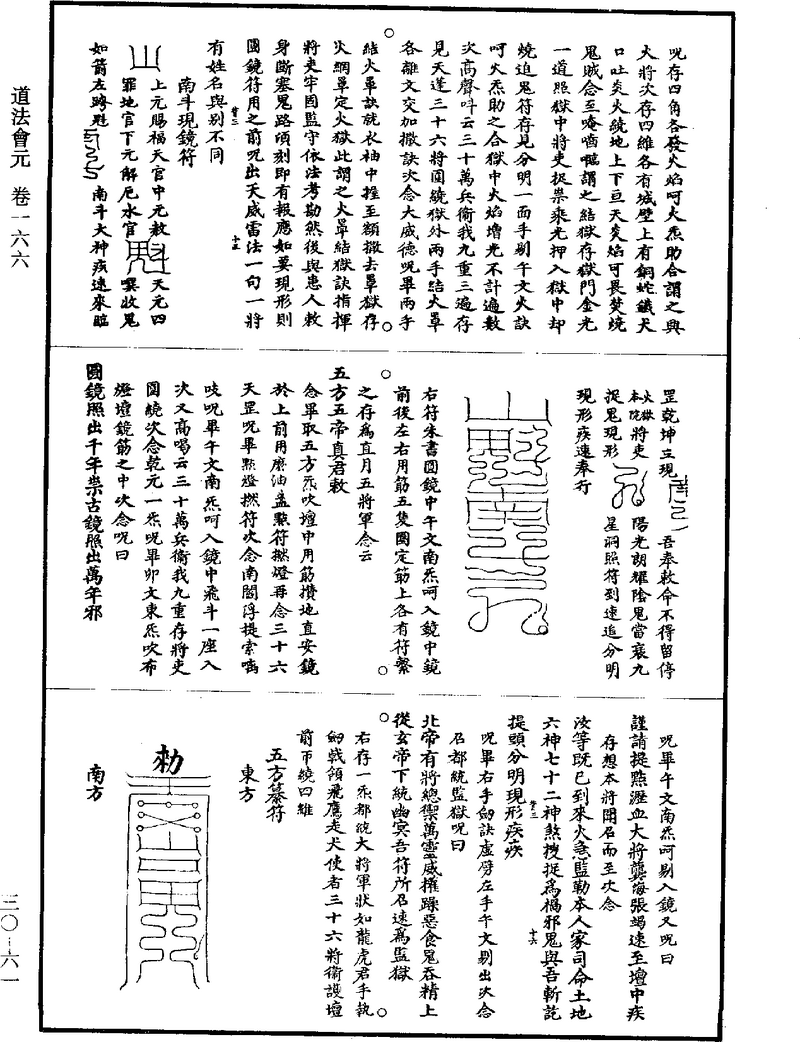 道法會元　卷一六六
三〇－六一
呪存四角各發火焰呵火炁助合謂之興
火將次存四維各有城壁上有銅蛇鐵犬
口吐炎火繞地上下亘天炎焰可畏焚燒
鬼賊念至唵嚙臨謂之結獄存獄門金光
一道照獄中將吏捉祟乘光押入獄中却
燒追鬼符存見分明一面手剔午文火訣
呵火炁助之合獄中火焰增光不計遍數
次高聲呌云三十萬兵衛我九重三遍存
見天蓬三十六將圓繞獄外兩手結火罩
各離文交加撒訣次念大威德呪畢兩手
結火罩訣就衣袖中推至額撒去罩獄存
火網罩定火獄此謂之火罩結獄訣指揮
將吏牢固監守依法考勘然後與患人敕
身斷塞鬼路頃刻即有報應如要現形則
圓鏡符用之前呪出天威雷法一句一將
有姓名與别不同
南斗現鏡符
上元賜福天官中元赦
天元四
罪地官下元解厄水官
噀收鬼
如箭左跨魁
南斗大神疾速來臨
罡乾坤立現
吾奉敕命不得留停
火獄本院將吏
陽光朗耀陰鬼當衰九
捉鬼現形
星洞照符到速追分明
現形疾速奉行
右符朱書圓鏡中午文南炁呵入鏡中鏡
前後左右用筋五隻圍定筋上各有符繫
之存為直月五將軍念云
五方五帝真君敕
念畢取五方炁吹壇中用筋攢地直安鏡
於上前用麻油盞點符撚燈再念三十六
天罡呪畢點燈撚符次念南閻浮提索喃
吱呪畢午文南炁呵入鏡中飛斗一座入
次又高喝云三十萬兵衛我九重存將吏
圓繞次念乾元一炁呪畢卯文東炁吹布
燈壇鏡筋之中次念呪曰
圓鏡照出千年祟古鏡照出萬年邪
呪畢午文南炁呵剔入鏡又呪曰
謹請提點瀝血大將龔海張竭速至壇中疾
存想本將聞召而至次念
汝等既已到來火急監勒本人家司命土地
六神七十二神煞搜捉為禍邪鬼與吾斬訖
提頭分明現形疾疾
呪畢右手劍訣虛劈左手午文剔出次念
召都統監獄呪曰
北帝有將總禦萬靈威攉躁惡食鬼吞精上
從玄帝下統幽冥吾符所召速為監獄
右存一炁都統大將軍狀如龍虎君手執
劍戟領飛鷹走犬使者三十六將衛護壇
前帀繞四維
五方纂符
東方
敕
南方